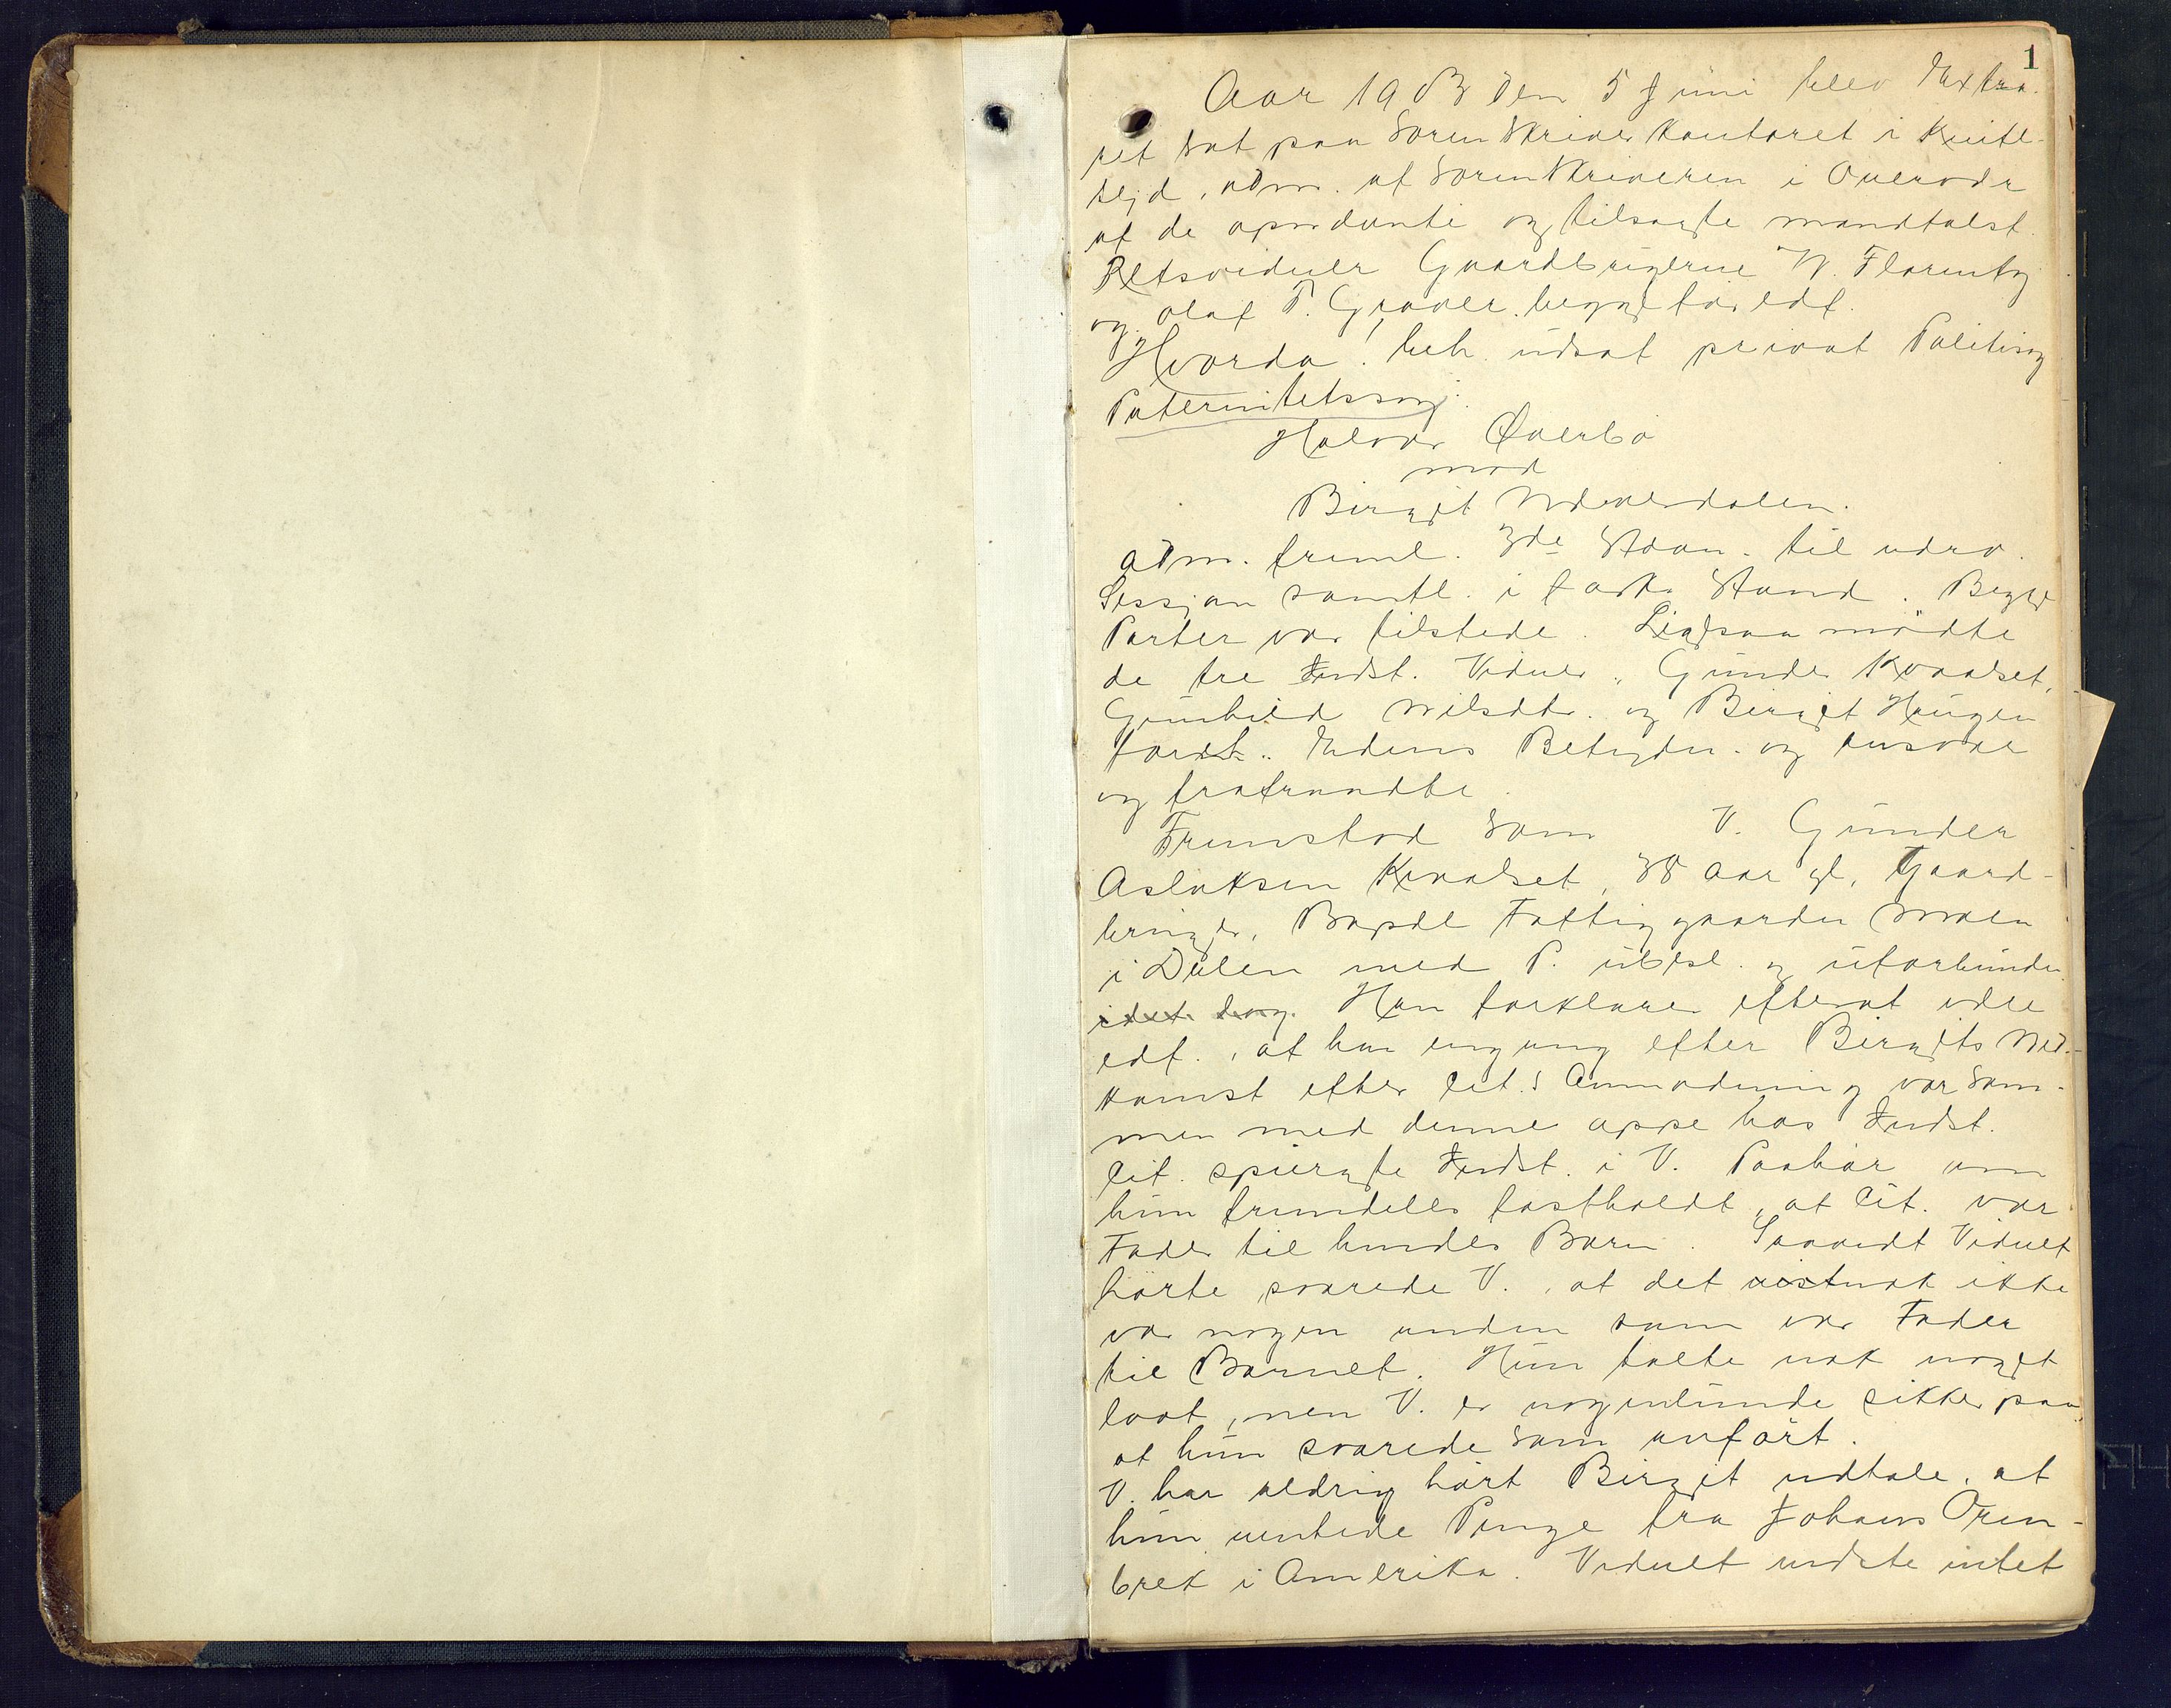 1
Aar 1903 den 5 Juni blev Extra
ret sat paa Sorenskriverkontoret i Kvite-
sejd, adm. af Sorenskriveren i Overvær
af de opnævnte og tilsagte mandtalsf.
Retsvidner Gaardbrugerne
og Olaf P. Graver begge før edf.
Hvorda! beh. udsat privat Politisag
Paternitetssag:
Halvor Øverbö
mod
Birgit
adm. freml. 3de Stævn. til
Sessjon samtl. i forsk. Stand. Begge
Parter var tilstede. Ligesaa mödte
de tre Indst. Vidner, Gunder Kvaalset,
Gunhild Nilsdtr. og Birgit Haugen
foreh. Edens Betydn. og Ansvar
og fratraadte.
Fremstod som V. Gunder
Aslaksen Kvaalset, 38 Aar gl, Gaard-
bruger, Bopæl Fattiggaarden Moen
i Dalen med P. ubesl. og uforbunden
Han forklarer efterat være
edf., at han engang efter Birgits Ned-
komst efter Cit.s Anmodning var sam-
men med denne oppe hos Indst.
Cit. spurgte Indst. i V. Paahör om
hun fremdeles fastholdt, at Cit. var
Fader til hendes Barn. Saavidt Vidnet
hörte svarede V., at det vistnok ikke
var nogen anden som var Fader
til Barnet. Hun talte nok noget
lavt, men V. er nogenlunde sikker paa,
at hun svarede som anfört.
V. har aldrig hört Birgit udtale, at
hun ventede Penge fra Johans Oren-
brek i Amerika. Vidnet vidste intet